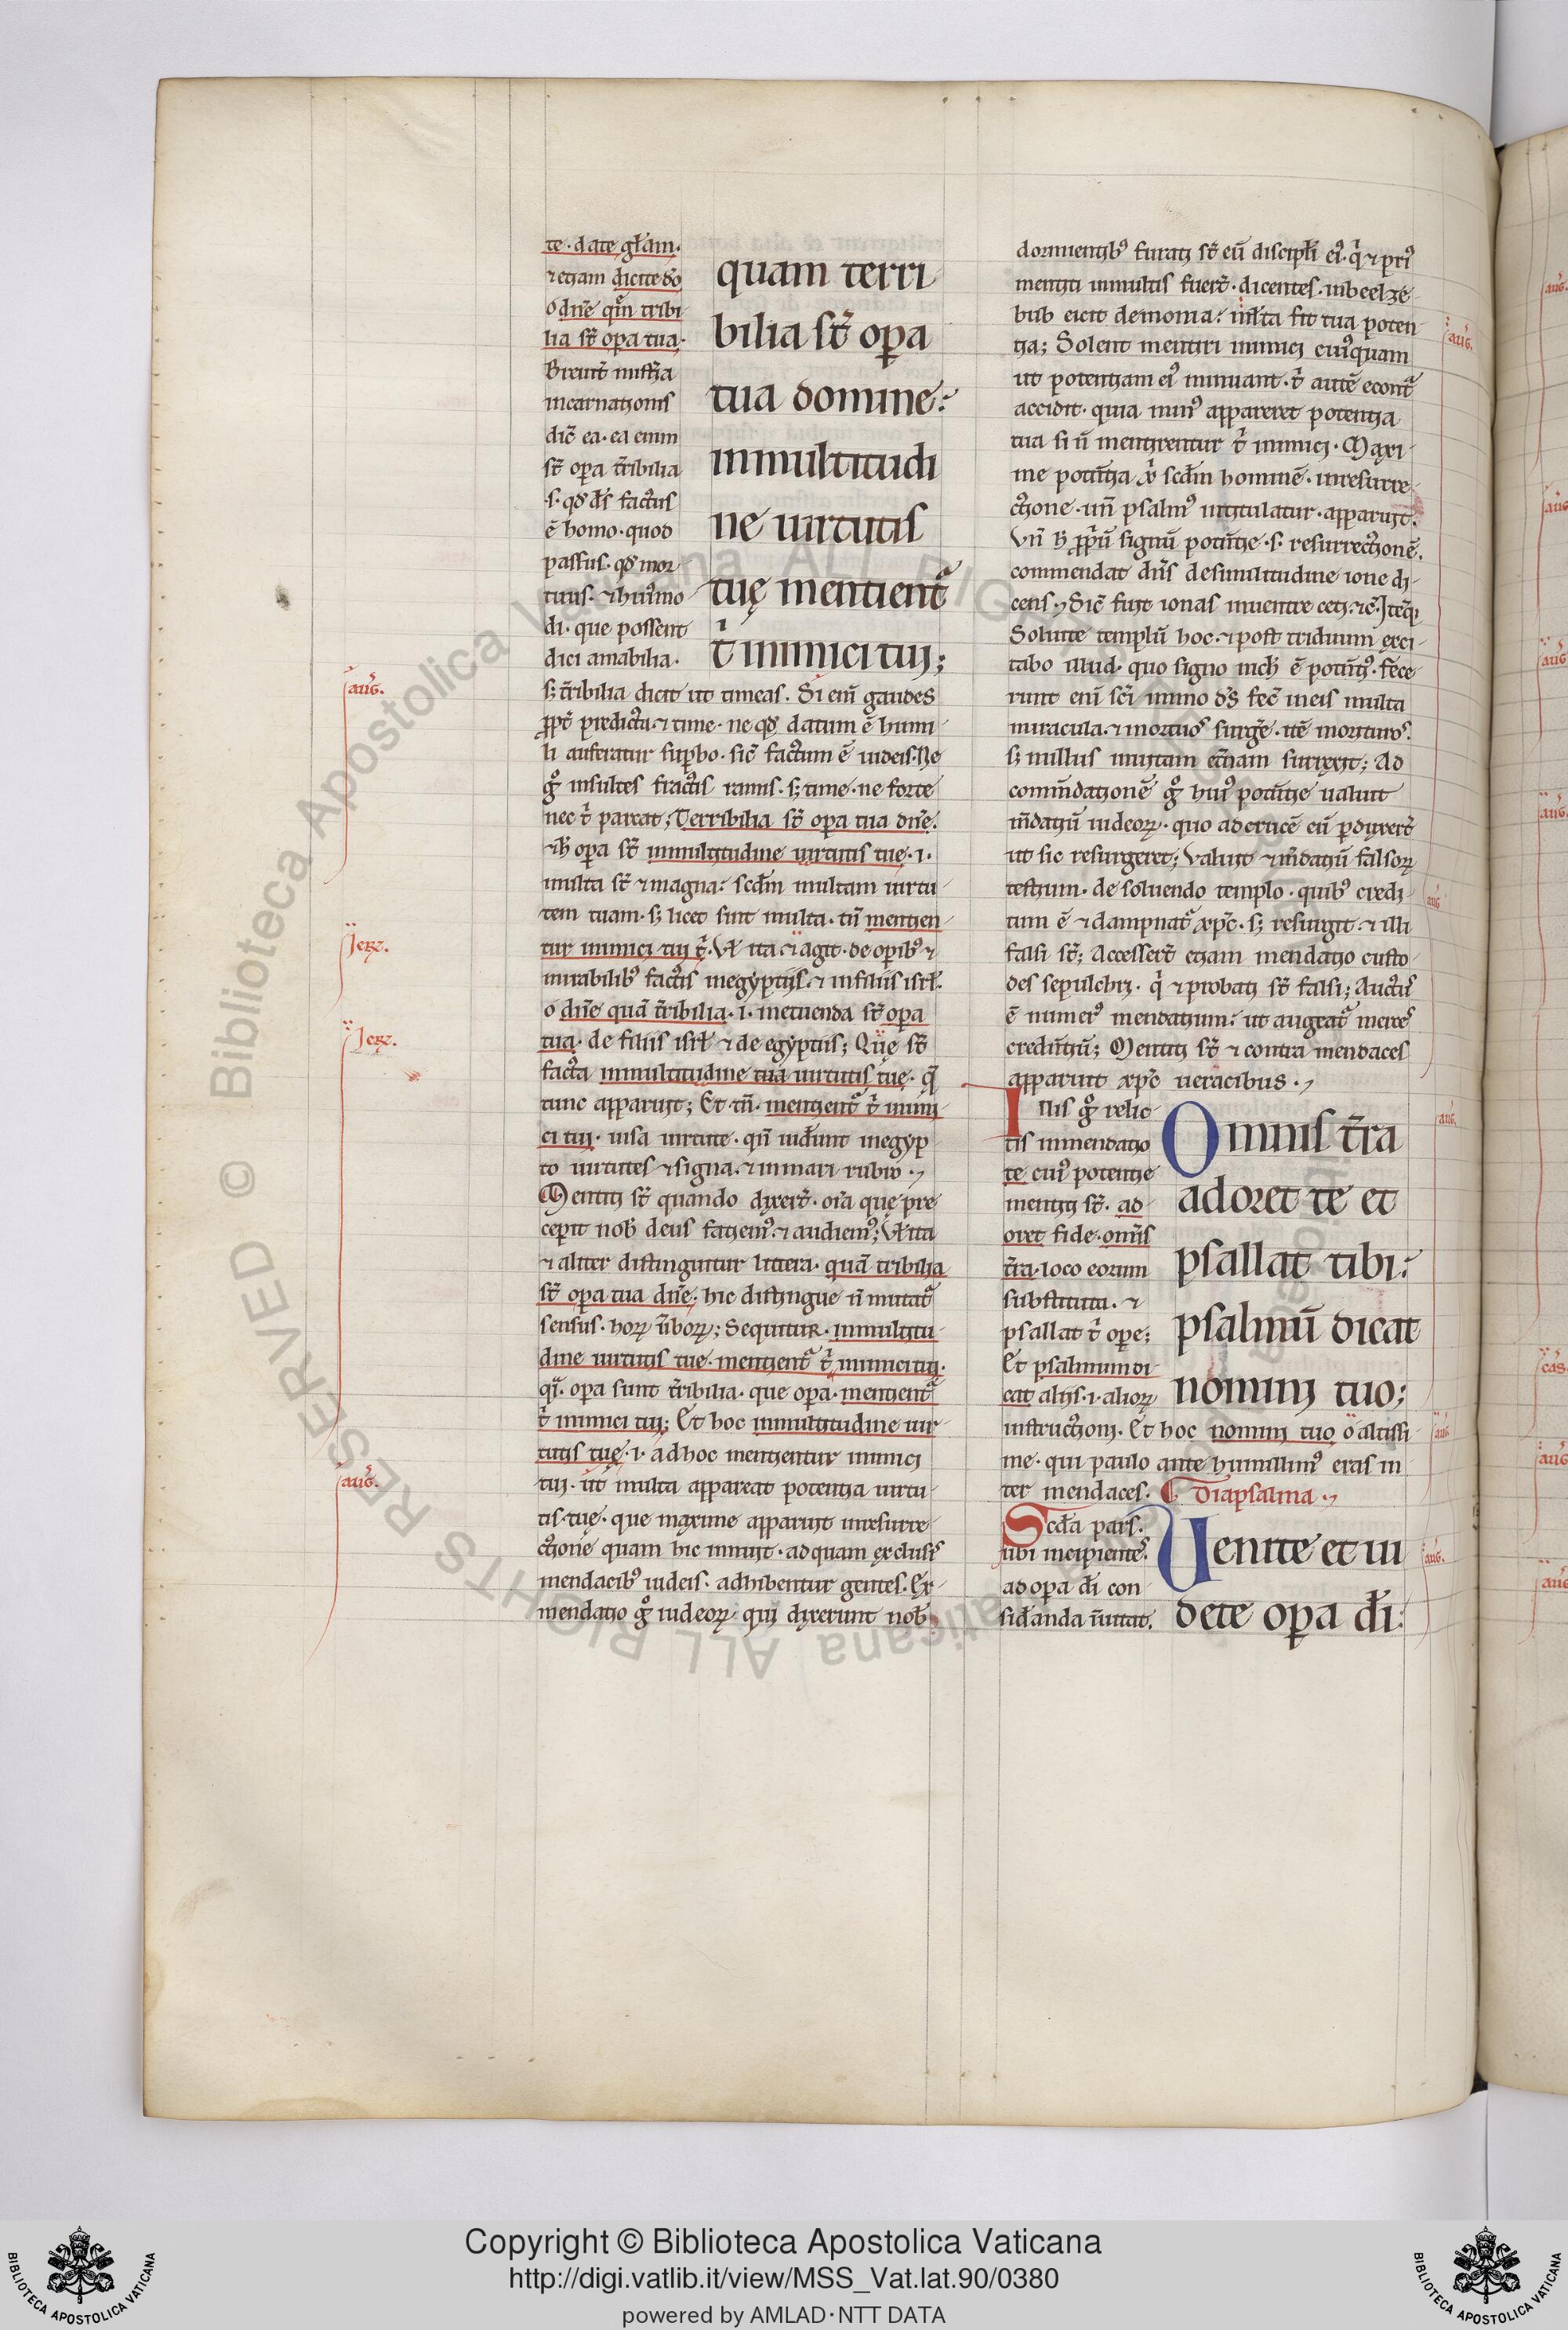 te. date gl̃am.
⁊ etiam dicite do
o dñe qm̃ t̃ribi
lia st̃ opa tua.
Breuit̃ miss̃a
incarnationis
dic̃ ea. ea enim
st̃ opa t̃ribilia
.s. qd d̃s factus
ẽ homo. quod
passus. qd mor
tuus. ⁊ hui᷒mo
di. que possent
dici amabilia.
quam terri
bilia st̃ opa
tua domine:
inmultitudi
ne uirtutis
tuę mentient᷑
t̾ inimici tui;
s; t̃ribilia dicit ut timeas. Si eni᷑ gaudes
ꝓpt̃ predicta. ⁊ time. ne qd datum ẽ humi
li auferatur suꝑbo. sic̃ factum ẽ iudeis. Ne
g̊ insultes fractis ramis. s; time. ne forte
nec t̾ parcat; Terribilia st̃ opa tua dñe.
⁊ h̾ opa st̃ inmultitudine uirtutis tuę. i.
multa st̃ ⁊ magna: scd̃m multam uirtu
tem tuam. s; licet sint multa. tñ mentien
tur inimici tui t̾. Vl̃ ita ⁊ agit. de opib᷒ ⁊
mirabilib᷒ factis inegyptiis. ⁊ infiliis isrl̃.
o dñe quã t̃ribilia. i. metuenda st̃ opa
tua. de filiis isrl̃ ⁊ de egyptiis; Que st̃
facta inmultitudine tua uirtutis tuę. q̃
tunc apparuit; Et tñ. mentient᷑ t̾ inimi
ci tui. uisa uirtute. qñ uider̃unt inegyp
to uirtutes ⁊ signa. ⁊ inmari rubro.
Mentiti st̃ quando dixer̃t. oi᷑a que pre
cepit nob̃ deus faciem᷒. ⁊ audiem᷒; Vl̃ ita
⁊ aliter distinguitur littera. quã t̃ribilia
st̃ opa tua dñe. hic distingue ñ mutat᷑
sensus. hoꝝ ũboꝝ; Sequitur. inmultitu
dine uirtutis tue. mentient᷑ t̾ inimici tui.
q̾. opa sunt t̃ribilia. que opa. mentient᷑
t̾ inimici tui; Et hoc inmultitudine uir
tutis tuę. i. adhoc mentientur inimici
tui. ut multa appareat potentia uirtu
tis tuę. que maxime apparuit inresurre
ctione quam hic innuit. adquam exclusis
mendacib᷒ iudeis. adhibentur gentes. Ex
mendatio g̊ iudeoꝝ. qui dixerunt nob̃
aug̃.
Ierꝝ.
Ierꝝ.
aug̃.
dormientib᷒ furati st̃ eũ discipl̃i ei᷒. q̾ ⁊ pri᷒
mentiti inmultis fuer̃t. dicentes. inbeelze
bub eicit demonia: ml̃ta fit tua poten
tia; Solent mentiri inimici cui᷒quam
ut potentiam ei᷒ minuant. t̾ autẽ econt᷑
accidit. quia min᷒ appareret potentia
tua si ñ mentirentur t̾ inimici. Maxi
me potñtia xp̃i scd̃m hominẽ. inresurre
ctione. uñ psalm᷒ intitulatur. apparuit.
Vñ h̾ ꝓpũ signũ potñtie. s. resurrectionẽ.
commendat dñs desimilitudine ione di
cens. Sic̃ fuit ionas inuentre ceti. ⁊c̃. Iteq̾
Soluite templũ hoc. ⁊ post triduum exci
tabo illud. quo signo nich̃ ẽ potñti᷒. fece
runt eni᷑ sc̃i immo d̃s fec̃ ineis multa
miracula. ⁊ mortuos surgẽ. itẽ morituros.
s; nullus inuitam et̃nam surrexit; Ad
comñdationẽ g̊ hui᷒ potñtie ualuit
m̃datiũ iudeoꝝ. quo adcrucẽ eũ ꝑduxer̃t
ut sic resurgeret; Valuit ⁊ m̃datiũ falsoꝝ
testium. de soluendo templo. quib᷒ credi
tum ẽ ⁊ dampnat᷑ xp̃c. s; resurgit. ⁊ illi
falsi st̃; Accesser̃t etiam mendatio custo
des sepulchri. q̾ ⁊ probati st̃ falsi; Auctus
ẽ numer᷒ mendatium: ut augeat᷑ merces
credñtiũ; Mentiti st̃ ⁊ contra mendaces
apparuit xp̃c ueracibus.
Illis g̊ relic
tis inmendatio
te cui᷒ potentie
mentiti st̃. ad
oret fide. omĩs
t̃ra. loco eorum
substituta. ⁊
psallat t̾ ope;
Et psalmum di
cat aliis. i. alioꝝ
Omnis t̃ra
adoret te et
psallat tibi:
psalmũ dicat
nomini tuo;
instructioni. Et hoc nomini tuo o altissi
me. qui paulo ante humillim᷒ eras in
ter mendaces. ¶ Diapsalma.
Scd̃a pars.
ubi incipientes.
ad opa dĩ con
sid̃anda ĩuitat.
Uenite et ui
dete opa dĩ:
aug̃.
aug̃.
aug̃.
aug̃.
aug̃.
Copyright © Biblioteca Apostolica Vaticana
http://digi.vatlib.it/view/MSS_Vat.lat.90/0380
powered by AMLAD·NTT DATA
BIBLIOTECA APOSTOLICA VATICANA
BIBLIOTECA APOSTOLICA VATICANA
© Biblioteca Apostolica Vaticana ALL RIGHTS RESERVED